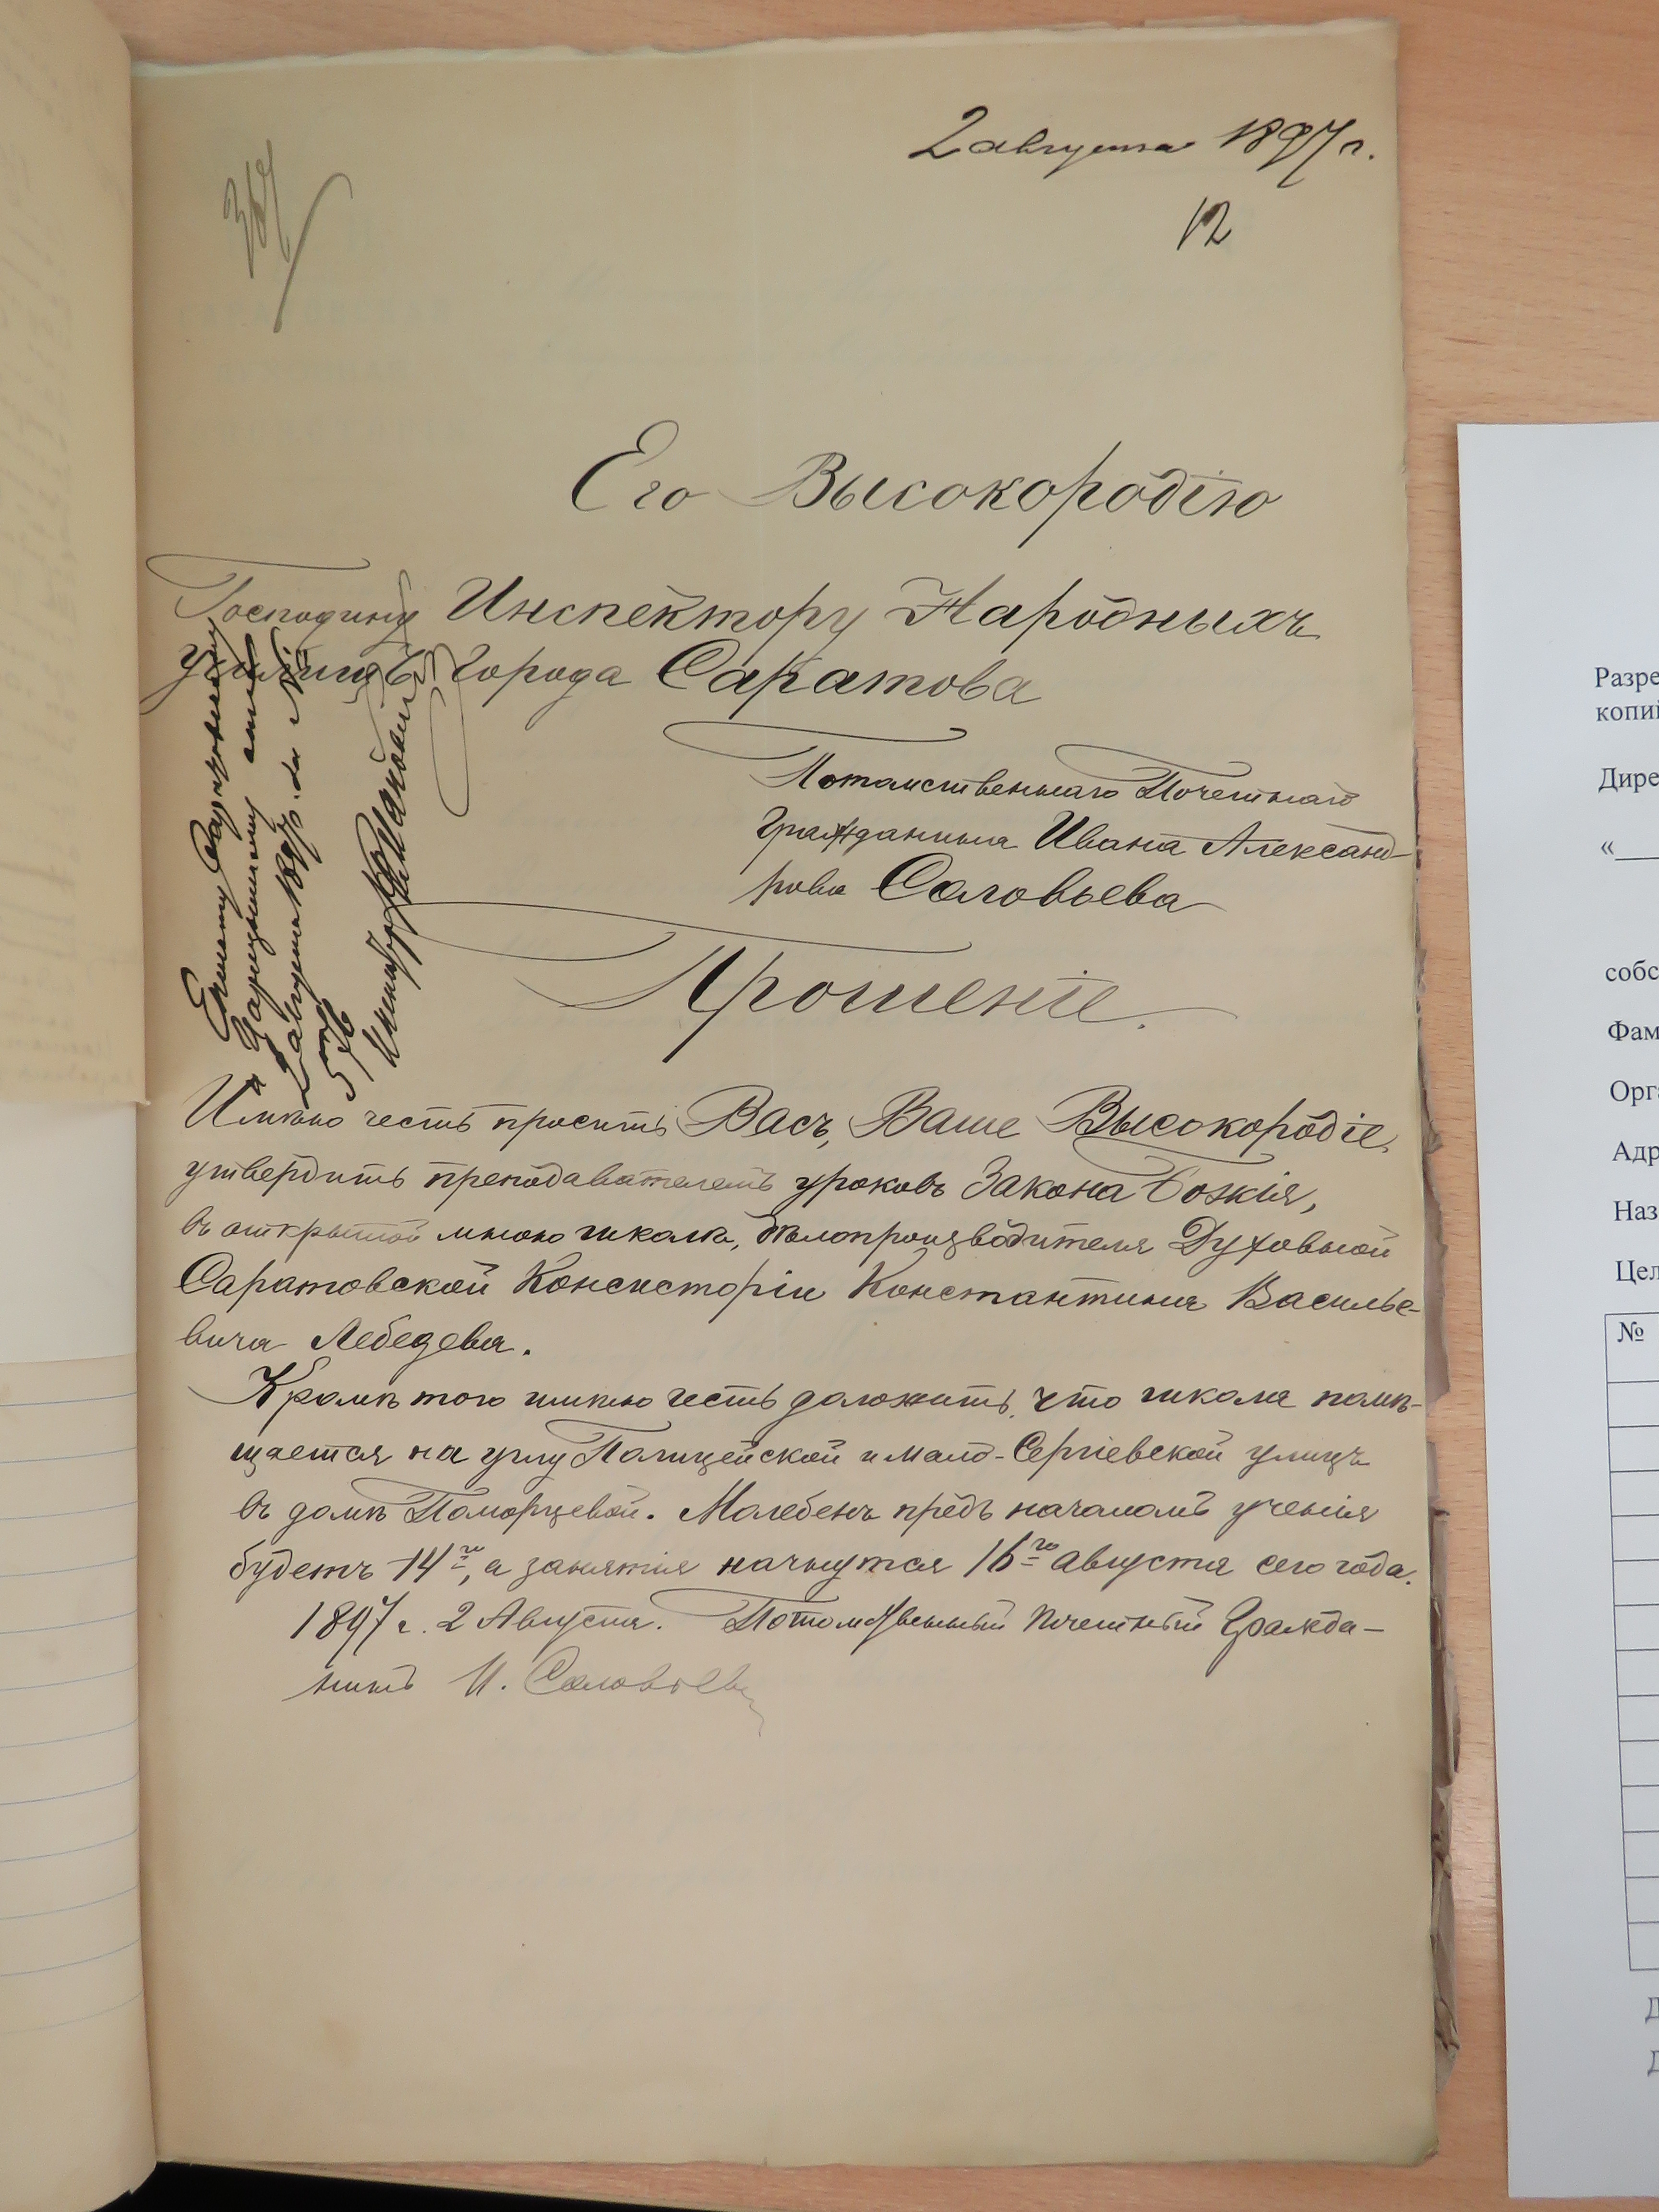 2 августа 1897 г.
12
Его Высокородію
Господину Инспектору Народныхъ
училищъ города Саратова
Потомственнаго Почетнаго
Гражданина Ивана Александ-
рова Соловьева
Прошеніе.
Имѣю честь просить Васъ, Ваше Высокородіе,
утвердить преподавателемъ уроковъ Закона Божія,
въ открытой мною школѣ, дѣлопроизводителя Духовной
Саратовской Консисторіи Константина Василье-
вича Лебедева.
Кромѣ того имѣю честь доложить, что школа помѣ-
щается на углу Полицейской и мало-Сергіевской улицъ
въ домѣ Поморцевой. Молебенъ предъ началомъ ученія
будетъ 14го, а занятія начнутся 16го августа сего года.
1897 г. 2 Августа. Потомственный Почетный Гражда-
нинъ И. Соловьевъ
августа 1897 г. за №
Разре
копий
Дире
«
собс
Фам
Орга
Адр
Наз
Цел
№
Д
Д